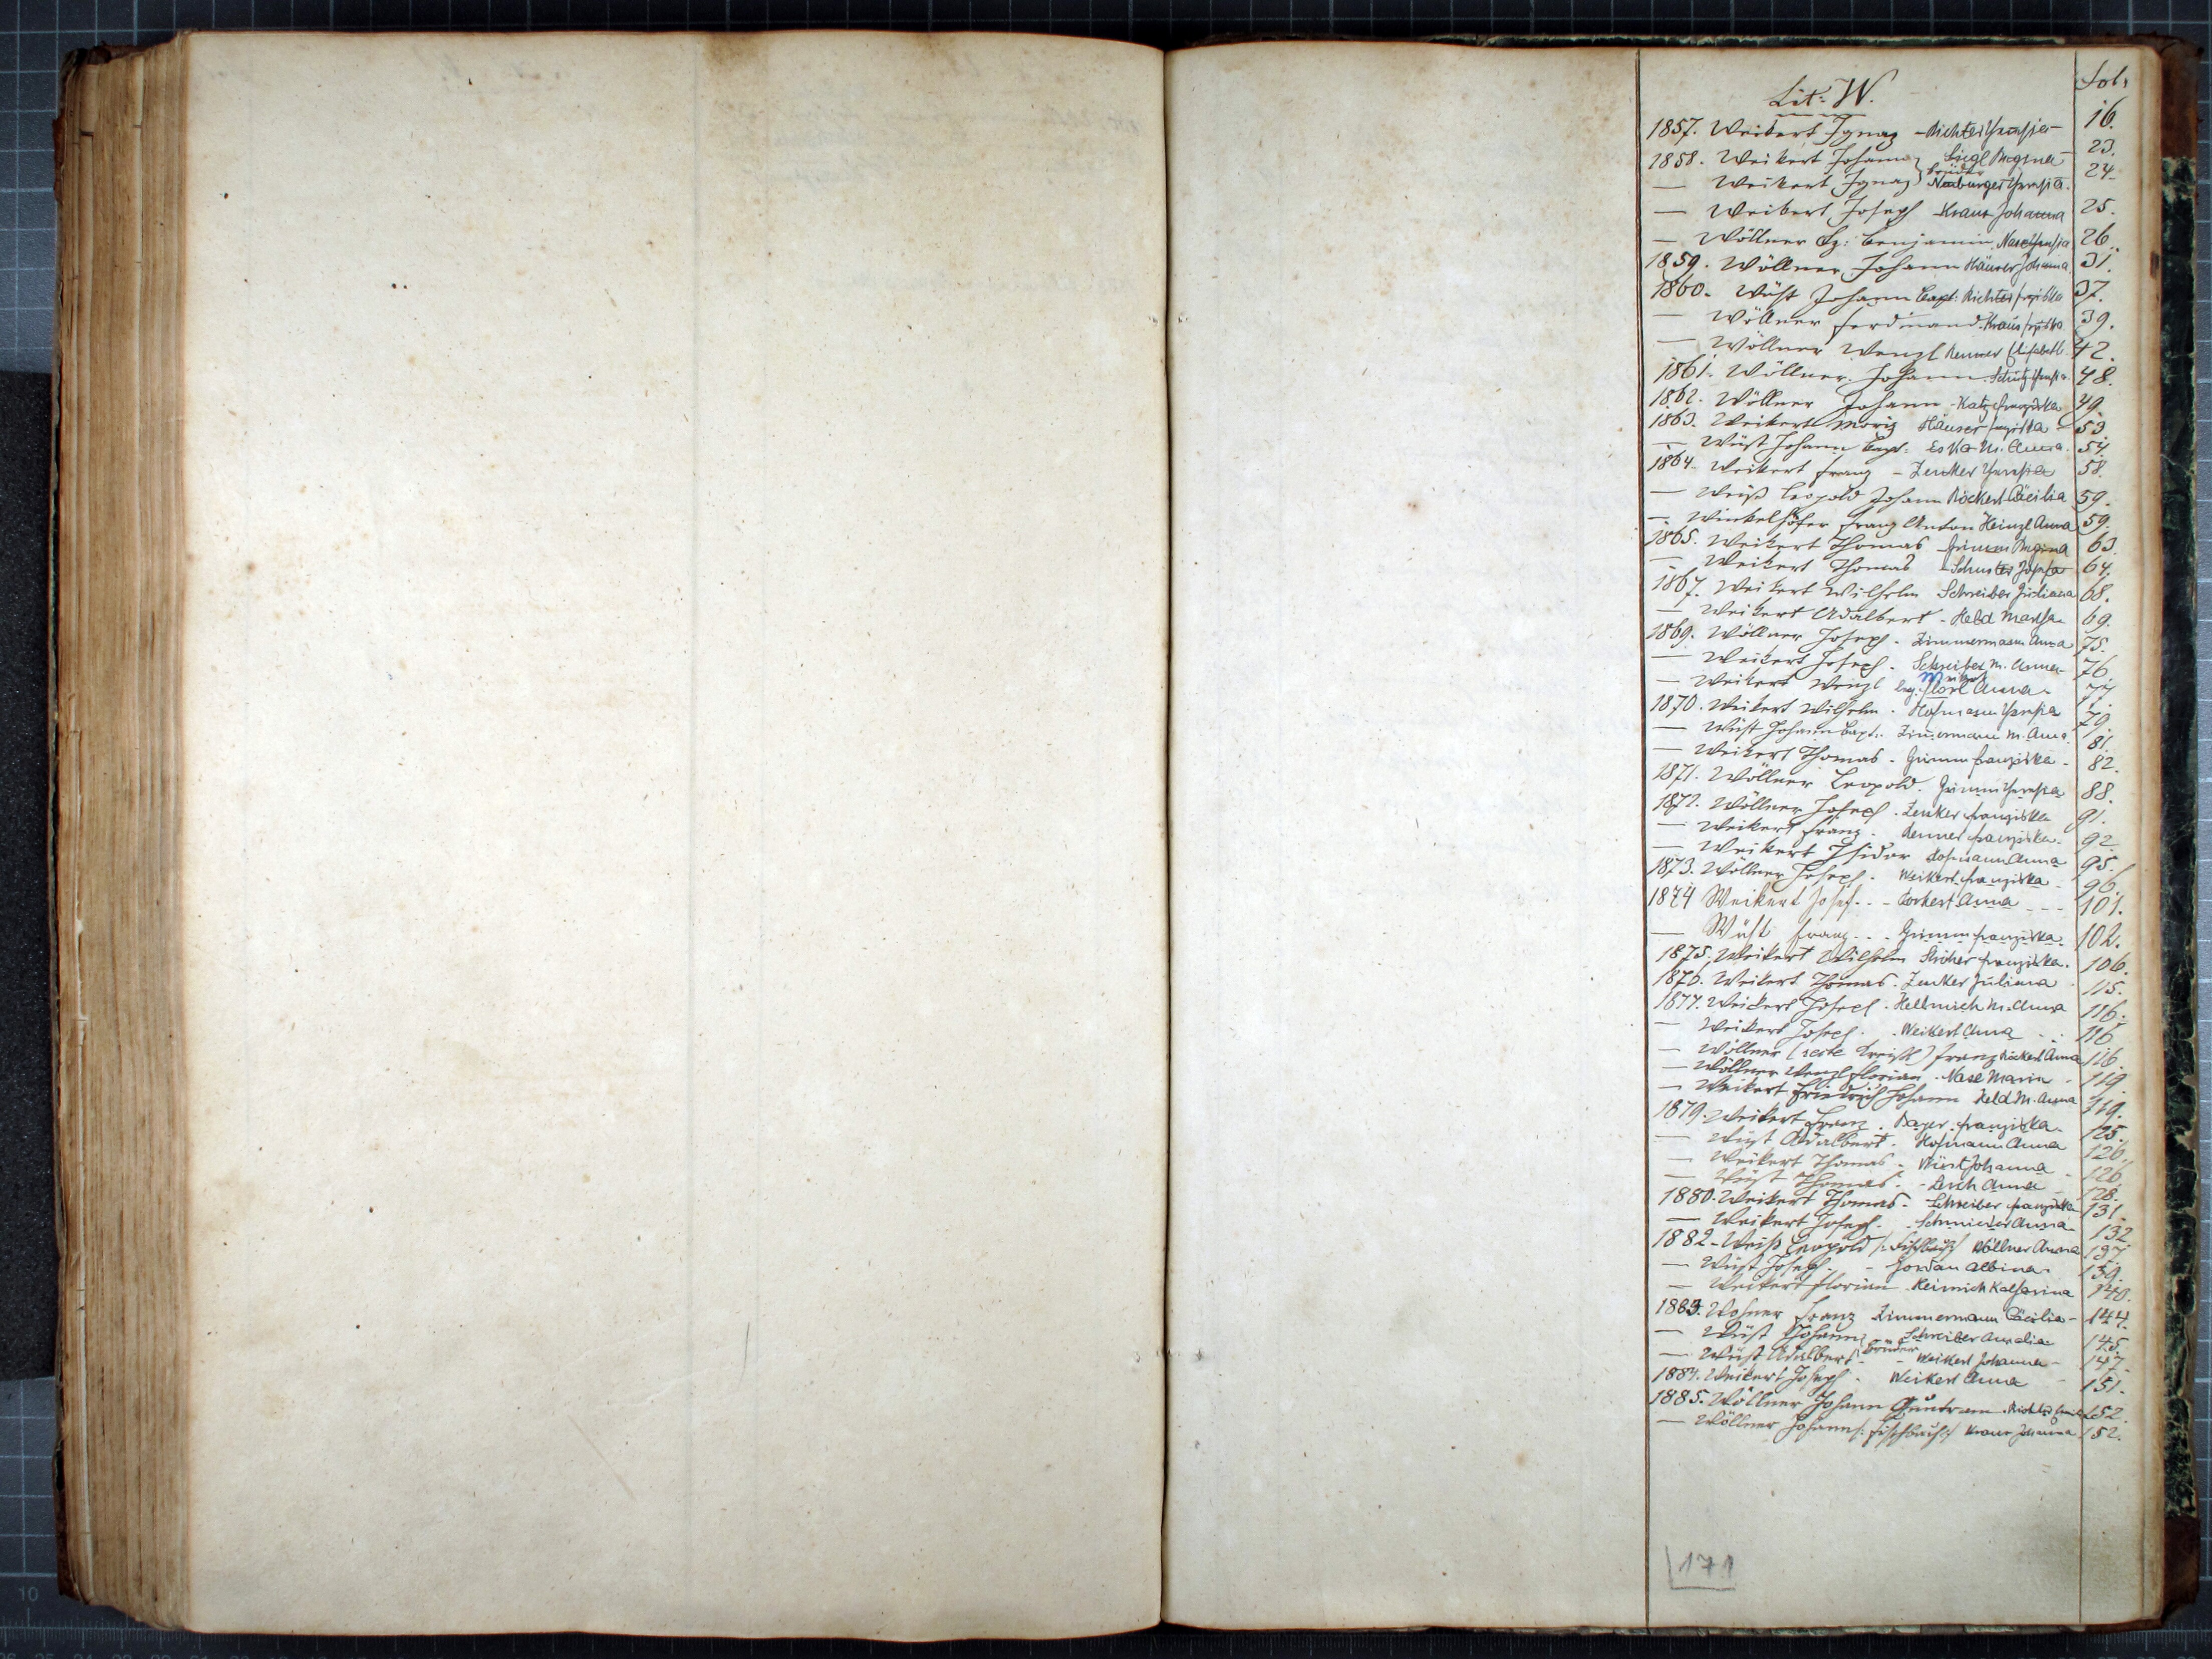 Lit: W.
Fol:
1857. Weikert Ignaz - Richter Theresia - 16.
1858. Weikert Johann Siegl Regina 23.
— Weikert Ignaz Brüder Neuburger Theresia. 24.
— Weikert Joseph Kraus Johanna 25.
— Wöllner Benjamin, Nase Theresia 26.
1859. Wöllner Johann Häuser Johanna. 31.
1860. Wüst Johann Bapt: Richter Franziska 37.
— Wöllner Ferdinand. Kraus Franziska 39.
— Wöllner Wenzl Renner Elisabeth. 42.
1861. Wöllner Johann. Schütz Theresia. 48.
1862. Wöllner Johann - Katzer Franziska 49.
1863. Weikert Moriz Häuser Franziska 53
— Wüst Johann Bapt. M. Anna. 54.
1864. Weikert Franz - Zenker Theresia 58.
— Weiß Leopold Johann Röckert Cäcilia 59.
— Winkelhöfer Franz Anton Heinzl Anna 59.
1865. Weikert Thomas Grimm Regina 63.
— Weikert Thomas - Schuster Josefa 64.
1867. Weikert Wilhelm Schreiber Juliana 68.
— Weikert Adalbert - Held Martha 69.
1869. Wöllner Joseph. Zimmermann Anna 75.
— Weikert Joseph. Schreiber M. Anna 76.
— Weikert Wenzl Anna. 77.
1870. Weikert Wilhelm. Hofmann Theresia 79.
— Wüst Johann Bapt. Zimmermann M. Anna. 81.
— Weikert Thomas. Grimm Franziska - 82.
1871. Wöllner Leopold. Grimm Theresia 88.
1872. Wöllner Joseph. Zenker Franziska 91.
— Weikert Franz. Renner Franziska. 92.
— Weikert Isidor Hofmann Anna 95.
1873. Wöllner Joseph. Weikert Franziska - 96.
1874 Weikert Josef. - Anna 101.
— Wüst Franz - Grimm Franziska. 102.
1875. Weikert Wilhelm Franziska. 106.
1876. Weikert Thomas. Zenker Juliana 115.
1877. Weikert Joseph. Hellmich M. Anna 116.
— Weikert Joseph. Weikert Anna 116
— Wöllner (recte) Franz Röckert Anna 116.
— Wöllner Wenzl Florian. Nase Maria 119.
— Weikert Friedrich Johann Held M. Anna 119.
1879. Weikert Franz. Bayer Franziska. 125.
— Wüst Adalbert. Hofmann Anna 126.
— Weikert Thomas - Wüst Johanna 126.
— Wüst Thomas. - Lerch Anna 128.
1880. Weikert Thomas - Schreiber Franziska 131.
— Weikert Joseph. Schmieder Anna 132
1882. Weiß Leopold Wöllner Anna 137.
— Wüst Joseph. - Jordan Albina. 139.
— Weikert Florian Heinrich Katharina 140.
1883. Franz Zimmermann Cäcilia - 144.
— Wüst Johann Schreiber Amalia 145.
— Wüst Adalbert. Brüder - Weikert Johanna - 147.
1884. Weikert Joseph. Weikert Anna - 151.
1885. Wöllner Johann Guntram. Richter 152.
— Wöllner Johann Kraus Johanna 152.
171